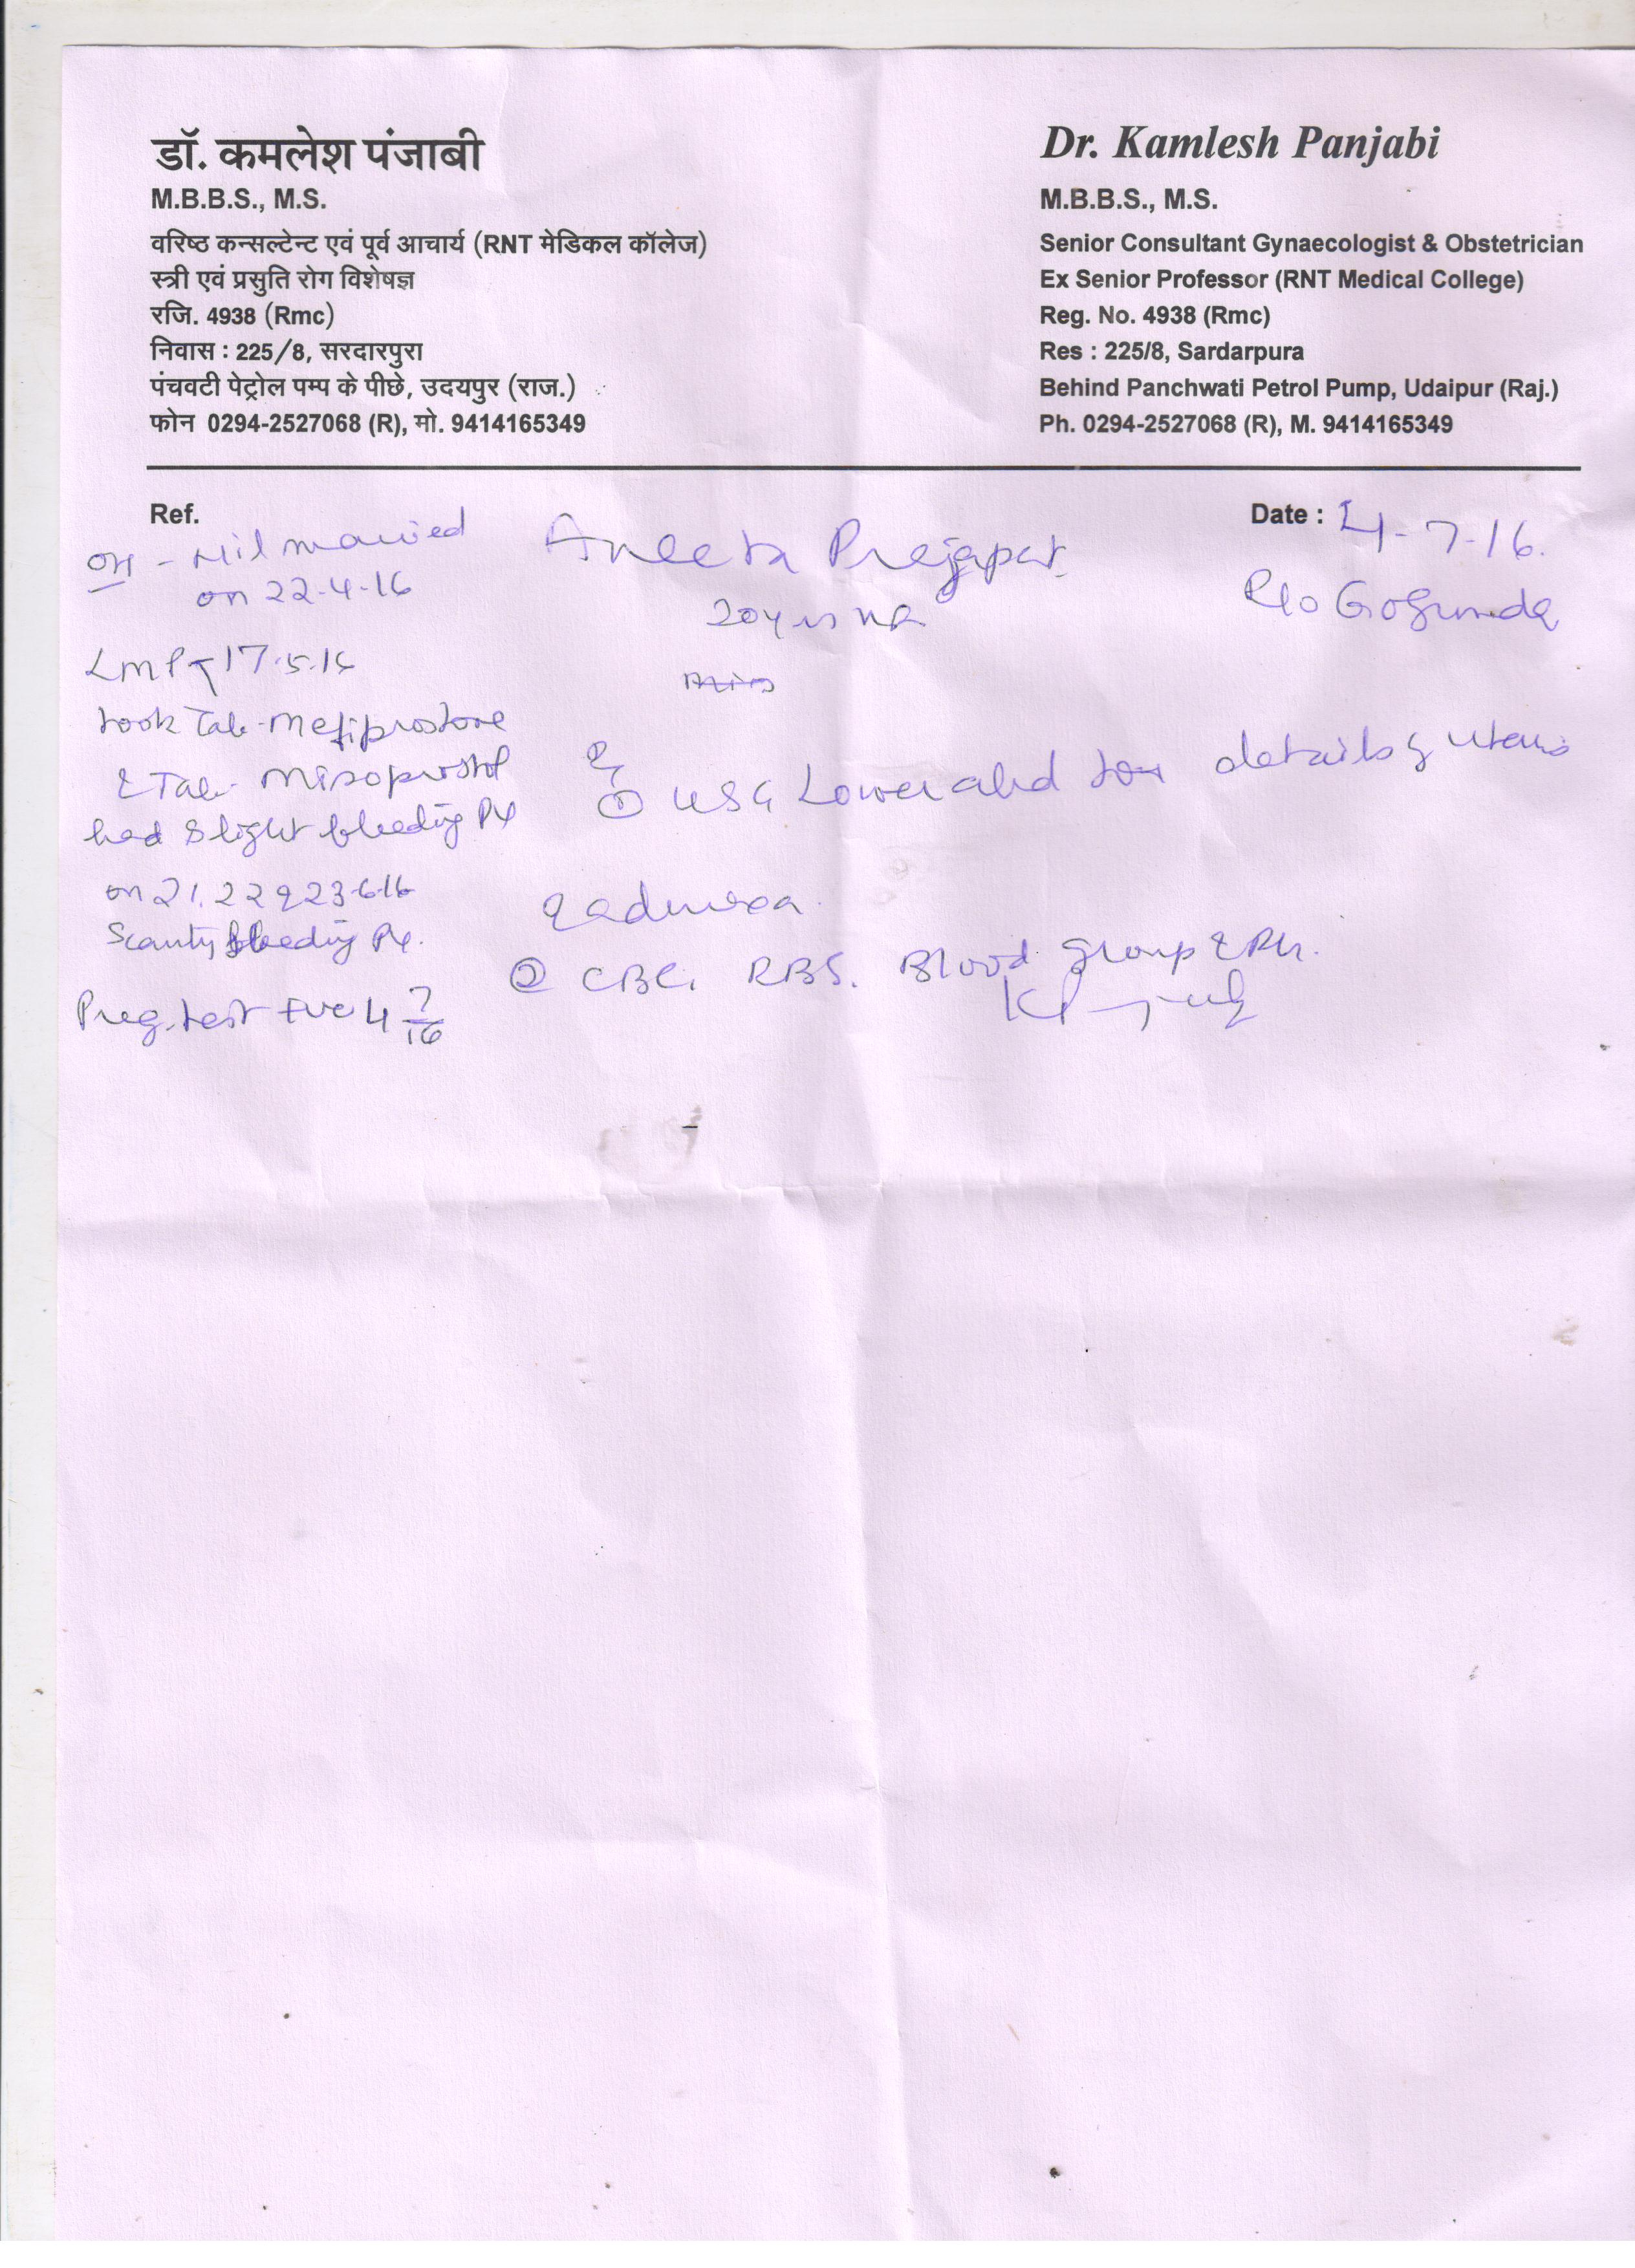 डॉ. कमलेश पंजाबी
M.B.B.S., M.S.
वरिष्ठ कन्सल्टेन्ट एवं पूर्व आचार्य (RNT मेडिकल कॉलेज)
स्त्री एवं प्रसुति रोग विशेषज्ञ
रजि. 4938 (Rmc)
निवास : 225/8, सरदारपुरा
पंचवटी पेट्रोल पम्प के पीछे, उदयपुर (राज.)
फोन 0294-2527068 (R), मो. 9414165349
Dr. Kamlesh Panjabi
M.B.B.S., M.S.
Senior Consultant Gynaecologist & Obstetrician
Ex Senior Professor (RNT Medical College)
Reg. No. 4938 (Rmc)
Res : 225/8, Sardarpura
Behind Panchwati Petrol Pump, Udaipur (Raj.)
Ph. 0294-2527068 (R), M. 9414165349
Ref.
Date : 4-7-16.
Aneeta Prajapat
R/o Gogunda
OH - Nil married
on 22-4-16
LMP 17.5.16
took Tab- Mefiprostone
& Tab- Misoprostol
had slight bleeding PV
on 21.22 & 23-6-16
Scanty bleeding PV.
Preg. test +ve 4 7/16
20 yrs
① USG Lower abd for details of uterus
& adnexa.
② CBC, RBS. Blood group & Rh.